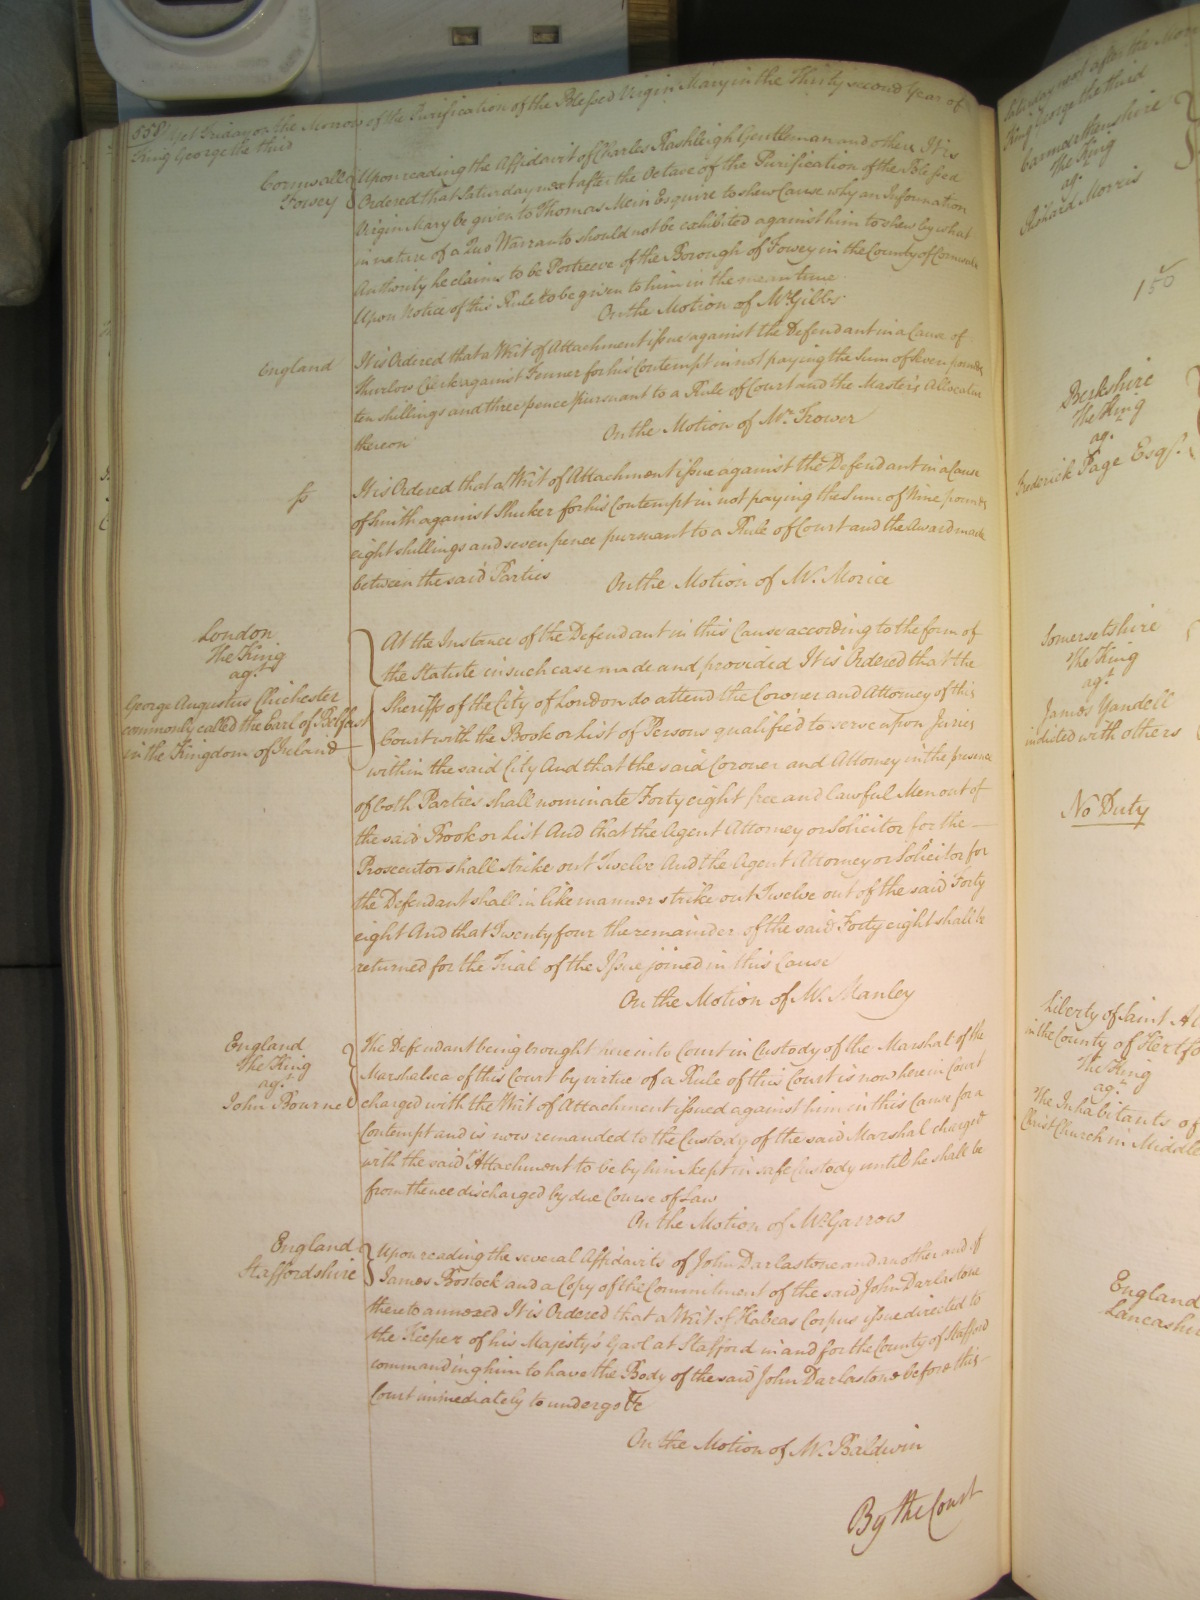 558 Yet Friday on the Morrow of the Purification of the Blessed Virgin Mary in the Thirty second Year of
King George the third
Cornwall
Fowey
Upon reading the Affidavit of Charles Rashleigh Gentleman and others It is
Ordered that Saturday next after the Octave of the Purification of the Blessed
Virgin Mary be given to Thomas Mein Esquire to shew Cause why an Information
in nature of a Quo Warranto should not be exhibited against him to shew by what
Authority he claims to be Portreeve of the Borough of Fowey in the County of Cornwall
Upon Notice of this Rule to be given to him in the mean time
On the Motion of Mr. Gibbs
England
It is Ordered that a Writ of Attachment issue against the Defendant in a Cause of
Thurlow Clerk against Fenner for his Contempt in not paying the Sum of seven pounds
ten shillings and three pence pursuant to a Rule of Court and the Master's Allocatur
thereon
On the Motion of Mr. Trower
It is Ordered that a Writ of Attachment issue against the Defendant in a Cause
of Smith against Shuker for his Contempt in not paying the Sum of Nine pounds
eight shillings and seven pence pursuant to a Rule of Court and the Award made
between the said Parties
On the Motion of Mr. Morice
London
The King
agt.
George Augustus Chichester
commonly called the Earl of Belfast
in the Kingdom of Ireland
At the Instance of the Defendant in this Cause according to the form of
the Statute in such case made and provided It is Ordered that the
Sheriffs of the City of London do attend the Coroner and Attorney of this
Court with the Book or List of Persons qualified to serve upon Juries
within the said City And that the said Coroner and Attorney in the presence
of both Parties shall nominate Forty eight free and lawful Men out of
the said Book or List And that the Agent Attorney or Solicitor for the
Prosecutor shall strike out Twelve And the Agent Attorney or Solicitor for
the Defendant shall in like manner strike out Twelve out of the said Forty
eight And that Twenty four the remainder of the said Forty eight shall be
returned for the Trial of the Issue joined in this Cause
On the Motion of Mr. Manley
England
The King
agt.
John Bourne
The Defendant being brought here into Court in Custody of the Marshal of the
Marshalsea of this Court by virtue of a Rule of this Court is now here in Court
charged with the Writ of Attachment issued against him in this Cause for a
Contempt and is now remanded to the Custody of the said Marshal charged
with the said Attachment to be by him kept in safe Custody until he shall be
from thence discharged by due Course of Law
On the Motion of Mr. Garrow
England
Staffordshire
Upon reading the several Affidavits of John Darlastone and another and of
James Bostock and a Copy of the Commitment of the said John Darlastone
thereto annexed It is Ordered that a Writ of Habeas Corpus issue directed to
the Keeper of his Majesty's Gaol at Stafford in and for the County of Stafford
commanding him to have the Body of the said John Darlastone before this
Court immediately to undergo &c
On the Motion of Mr. Baldwin
By the Court
Saturday next after the
King George the third
Carmarthenshire
The King
agt.
Richard Morris
Berkshire
The King
agt.
Frederick Page Esqr.
Somersetshire
The King
agt.
James Yandell
indicted with others
No Duty
Liberty of Saint
in the County of
The King
agt.
The Inhabitants of
Christ Church in
England